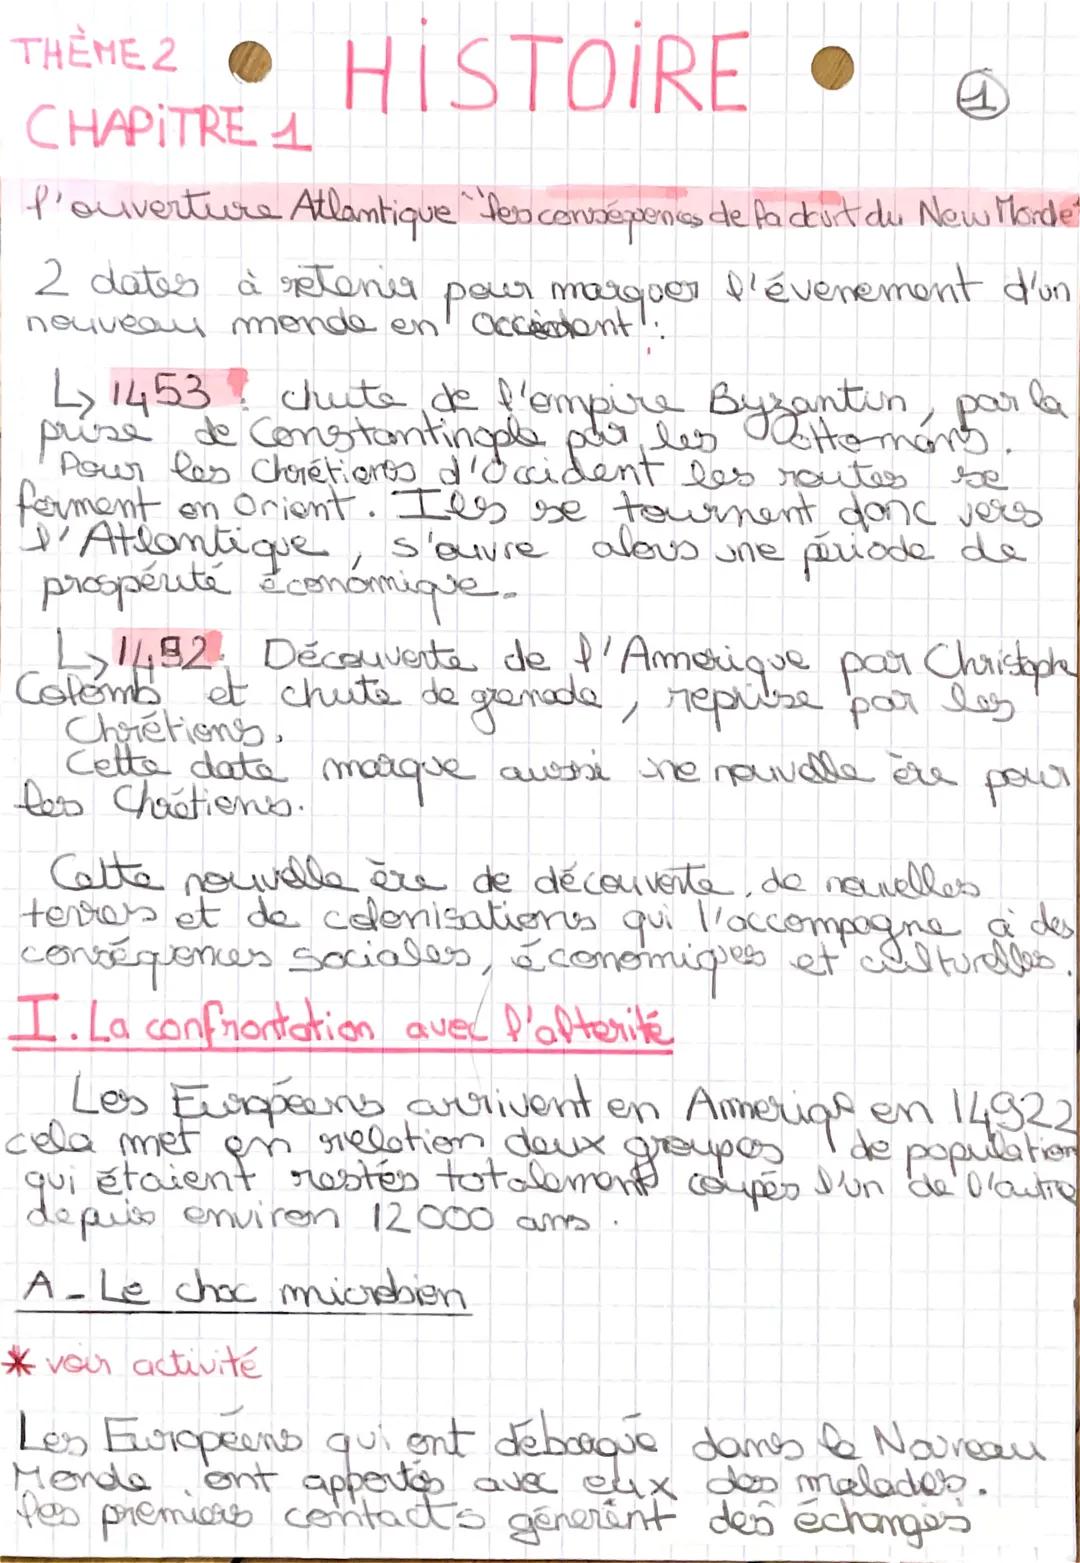 THÈME 2
HiSTOiRE
1
CHAPiTRE 1
l'ouverture Atlantique "les conséquences de la du New Monde"
2 dates à retenir pour marquer l'évenement d'un
nouveau monde en Occident :
↳ 1453 : chute de l'empire Byzantin, par la
prise de Constantinople par les Ottomans.
Pour les Chrétiens d'Occident les routes se
ferment en Orient. Ils se tournent donc vers
l'Atlantique, s'ouvre alors une période de
prospérité économique.
↳ 1492. Découverte de l'Amerique par Christophe
Colomb et chute de grenade, reprise par les
Chrétiens.
Cette date marque aussi une nouvelle ère pour
les Chrétiens.
Cette nouvelle ère de découverte, de nouvelles
terres et de colonisations qui l'accompagne à des
conséquences sociales, économiques et culturelles.
I. La confrontation avec l'alterité
Les Européens arrivent en en 14922
cela met en relation deux groupes de population
qui étaient restés totalement coupés l'un de l'autre
depuis environ 12000 ans.
A - Le choc microbien
* voir activité
Les Européens qui ont débarqué dans le Nouveau
Monde, ont apportés avec eux des malades.
les premiers contacts génerent des échanges